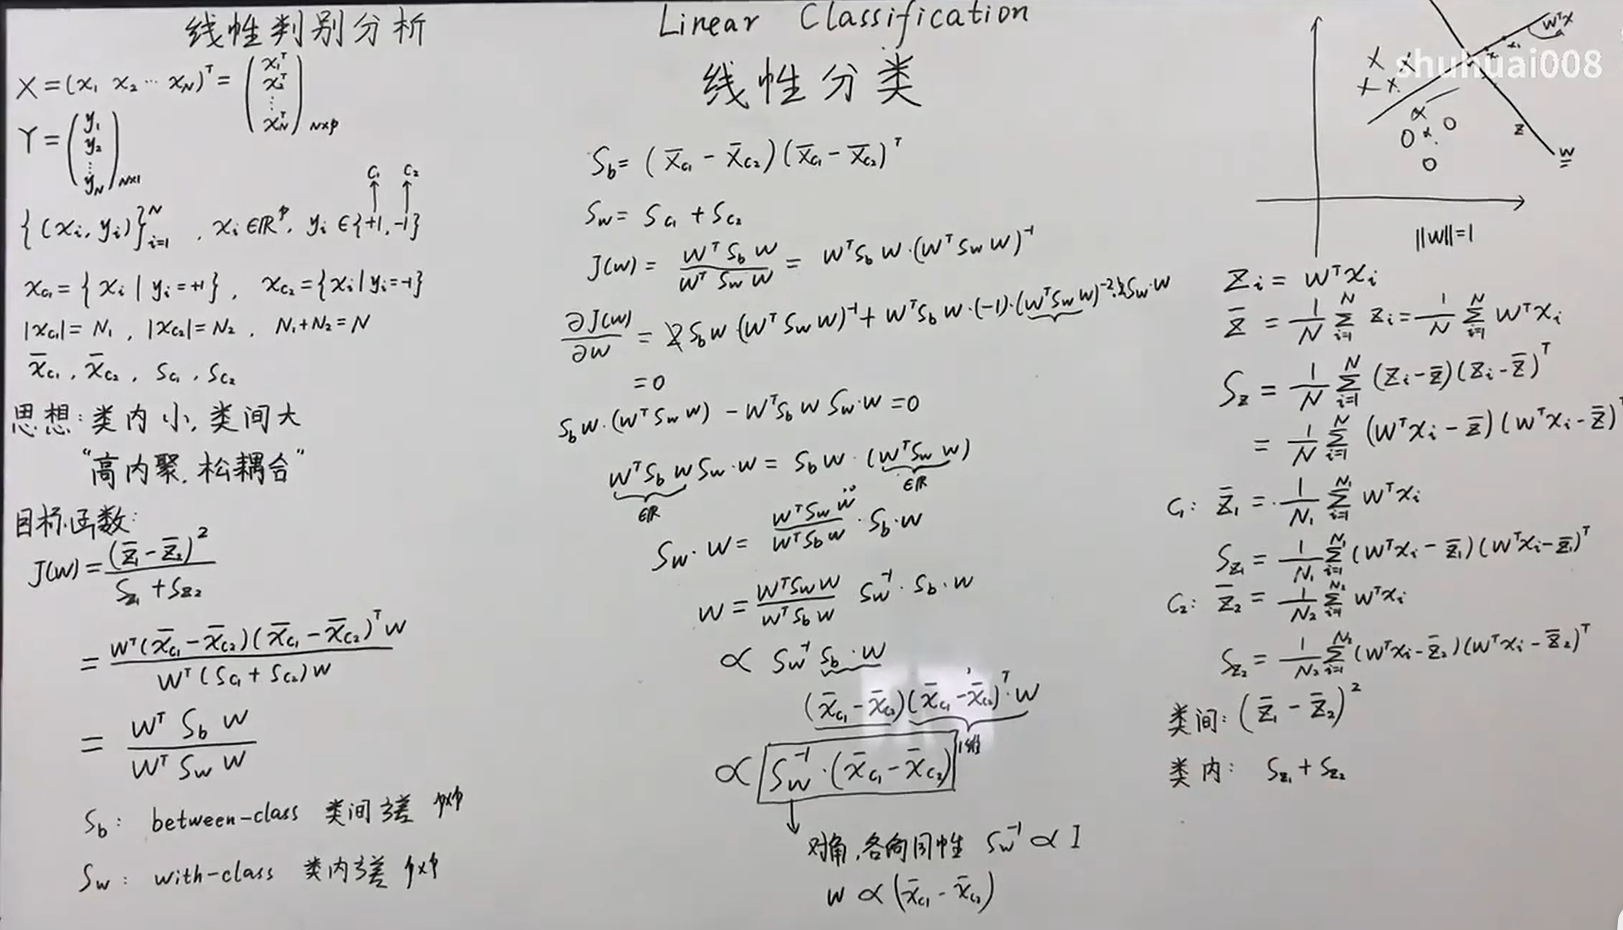 线性判别分析
X = (x₁ x₂ ⋯ x_N)ᵀ = (x₁ᵀ x₂ᵀ ⋮ x_Nᵀ)_{N×p}
Y = (y₁ y₂ ⋮ y_N)_{N×1}
C₁ C₂
{(xᵢ, yᵢ)}ᵢ₌₁ᴺ , xᵢ∈ℝᵖ, yᵢ∈{+1, -1}
x_{c₁} = {xᵢ | yᵢ=+1}, x_{c₂} = {xᵢ | yᵢ=-1}
|x_{c₁}| = N₁ , |x_{c₂}| = N₂ , N₁+N₂=N
x̄_{c₁}, x̄_{c₂}, S_{c₁}, S_{c₂}
思想: 类内小, 类间大
“高内聚, 松耦合”
目标函数:
J(w) = (z̄₁ - z̄₂)² / (S_{z₁} + S_{z₂})
= wᵀ(x̄_{c₁} - x̄_{c₂})(x̄_{c₁} - x̄_{c₂})ᵀw / wᵀ(S_{c₁} + S_{c₂})w
= wᵀ S_b w / wᵀ S_w w
S_b: between-class 类间方差 p×p
S_w: with-class 类内方差 p×p
Linear Classification
线性分类
S_b = (x̄_{c₁} - x̄_{c₂})(x̄_{c₁} - x̄_{c₂})ᵀ
S_w = S_{c₁} + S_{c₂}
J(w) = wᵀ S_b w / wᵀ S_w w = wᵀ S_b w·(wᵀ S_w w)⁻¹
∂J(w)/∂w = 2 S_b w (wᵀ S_w w)⁻¹ + wᵀ S_b w·(-1)·(wᵀ S_w w)⁻²·2 S_w·w
= 0
S_b w·(wᵀ S_w w) - wᵀ S_b w S_w·w = 0
wᵀ S_b w S_w·w = S_b w·(wᵀ S_w w)
∈ℝ ∈ℝ
S_w·w = wᵀ S_w w / wᵀ S_b w · S_b·w
w = wᵀ S_w w / wᵀ S_b w S_w⁻¹·S_b·w
∝ S_w⁻¹ S_b·w
(x̄_{c₁} - x̄_{c₂})(x̄_{c₁} - x̄_{c₂})ᵀ·w
1维
∝ S_w⁻¹·(x̄_{c₁} - x̄_{c₂})
对角, 各向同性 S_w⁻¹ ∝ I
w ∝ (x̄_{c₁} - x̄_{c₂})
shuhuai008
wᵀx
z
w
||w||=1
zᵢ = wᵀxᵢ
z̄ = 1/N Σᵢ₌₁ᴺ zᵢ = 1/N Σᵢ₌₁ᴺ wᵀxᵢ
S_z = 1/N Σᵢ₌₁ᴺ (zᵢ - z̄)(zᵢ - z̄)ᵀ
= 1/N Σᵢ₌₁ᴺ (wᵀxᵢ - z̄)(wᵀxᵢ - z̄)ᵀ
C₁: z̄₁ = 1/N₁ Σᵢ₌₁^{N₁} wᵀxᵢ
S_{z₁} = 1/N₁ Σᵢ₌₁^{N₁} (wᵀxᵢ - z̄₁)(wᵀxᵢ - z̄₁)ᵀ
C₂: z̄₂ = 1/N₂ Σᵢ₌₁^{N₂} wᵀxᵢ
S_{z₂} = 1/N₂ Σᵢ₌₁^{N₂} (wᵀxᵢ - z̄₂)(wᵀxᵢ - z̄₂)ᵀ
类间: (z̄₁ - z̄₂)²
类内: S_{z₁} + S_{z₂}